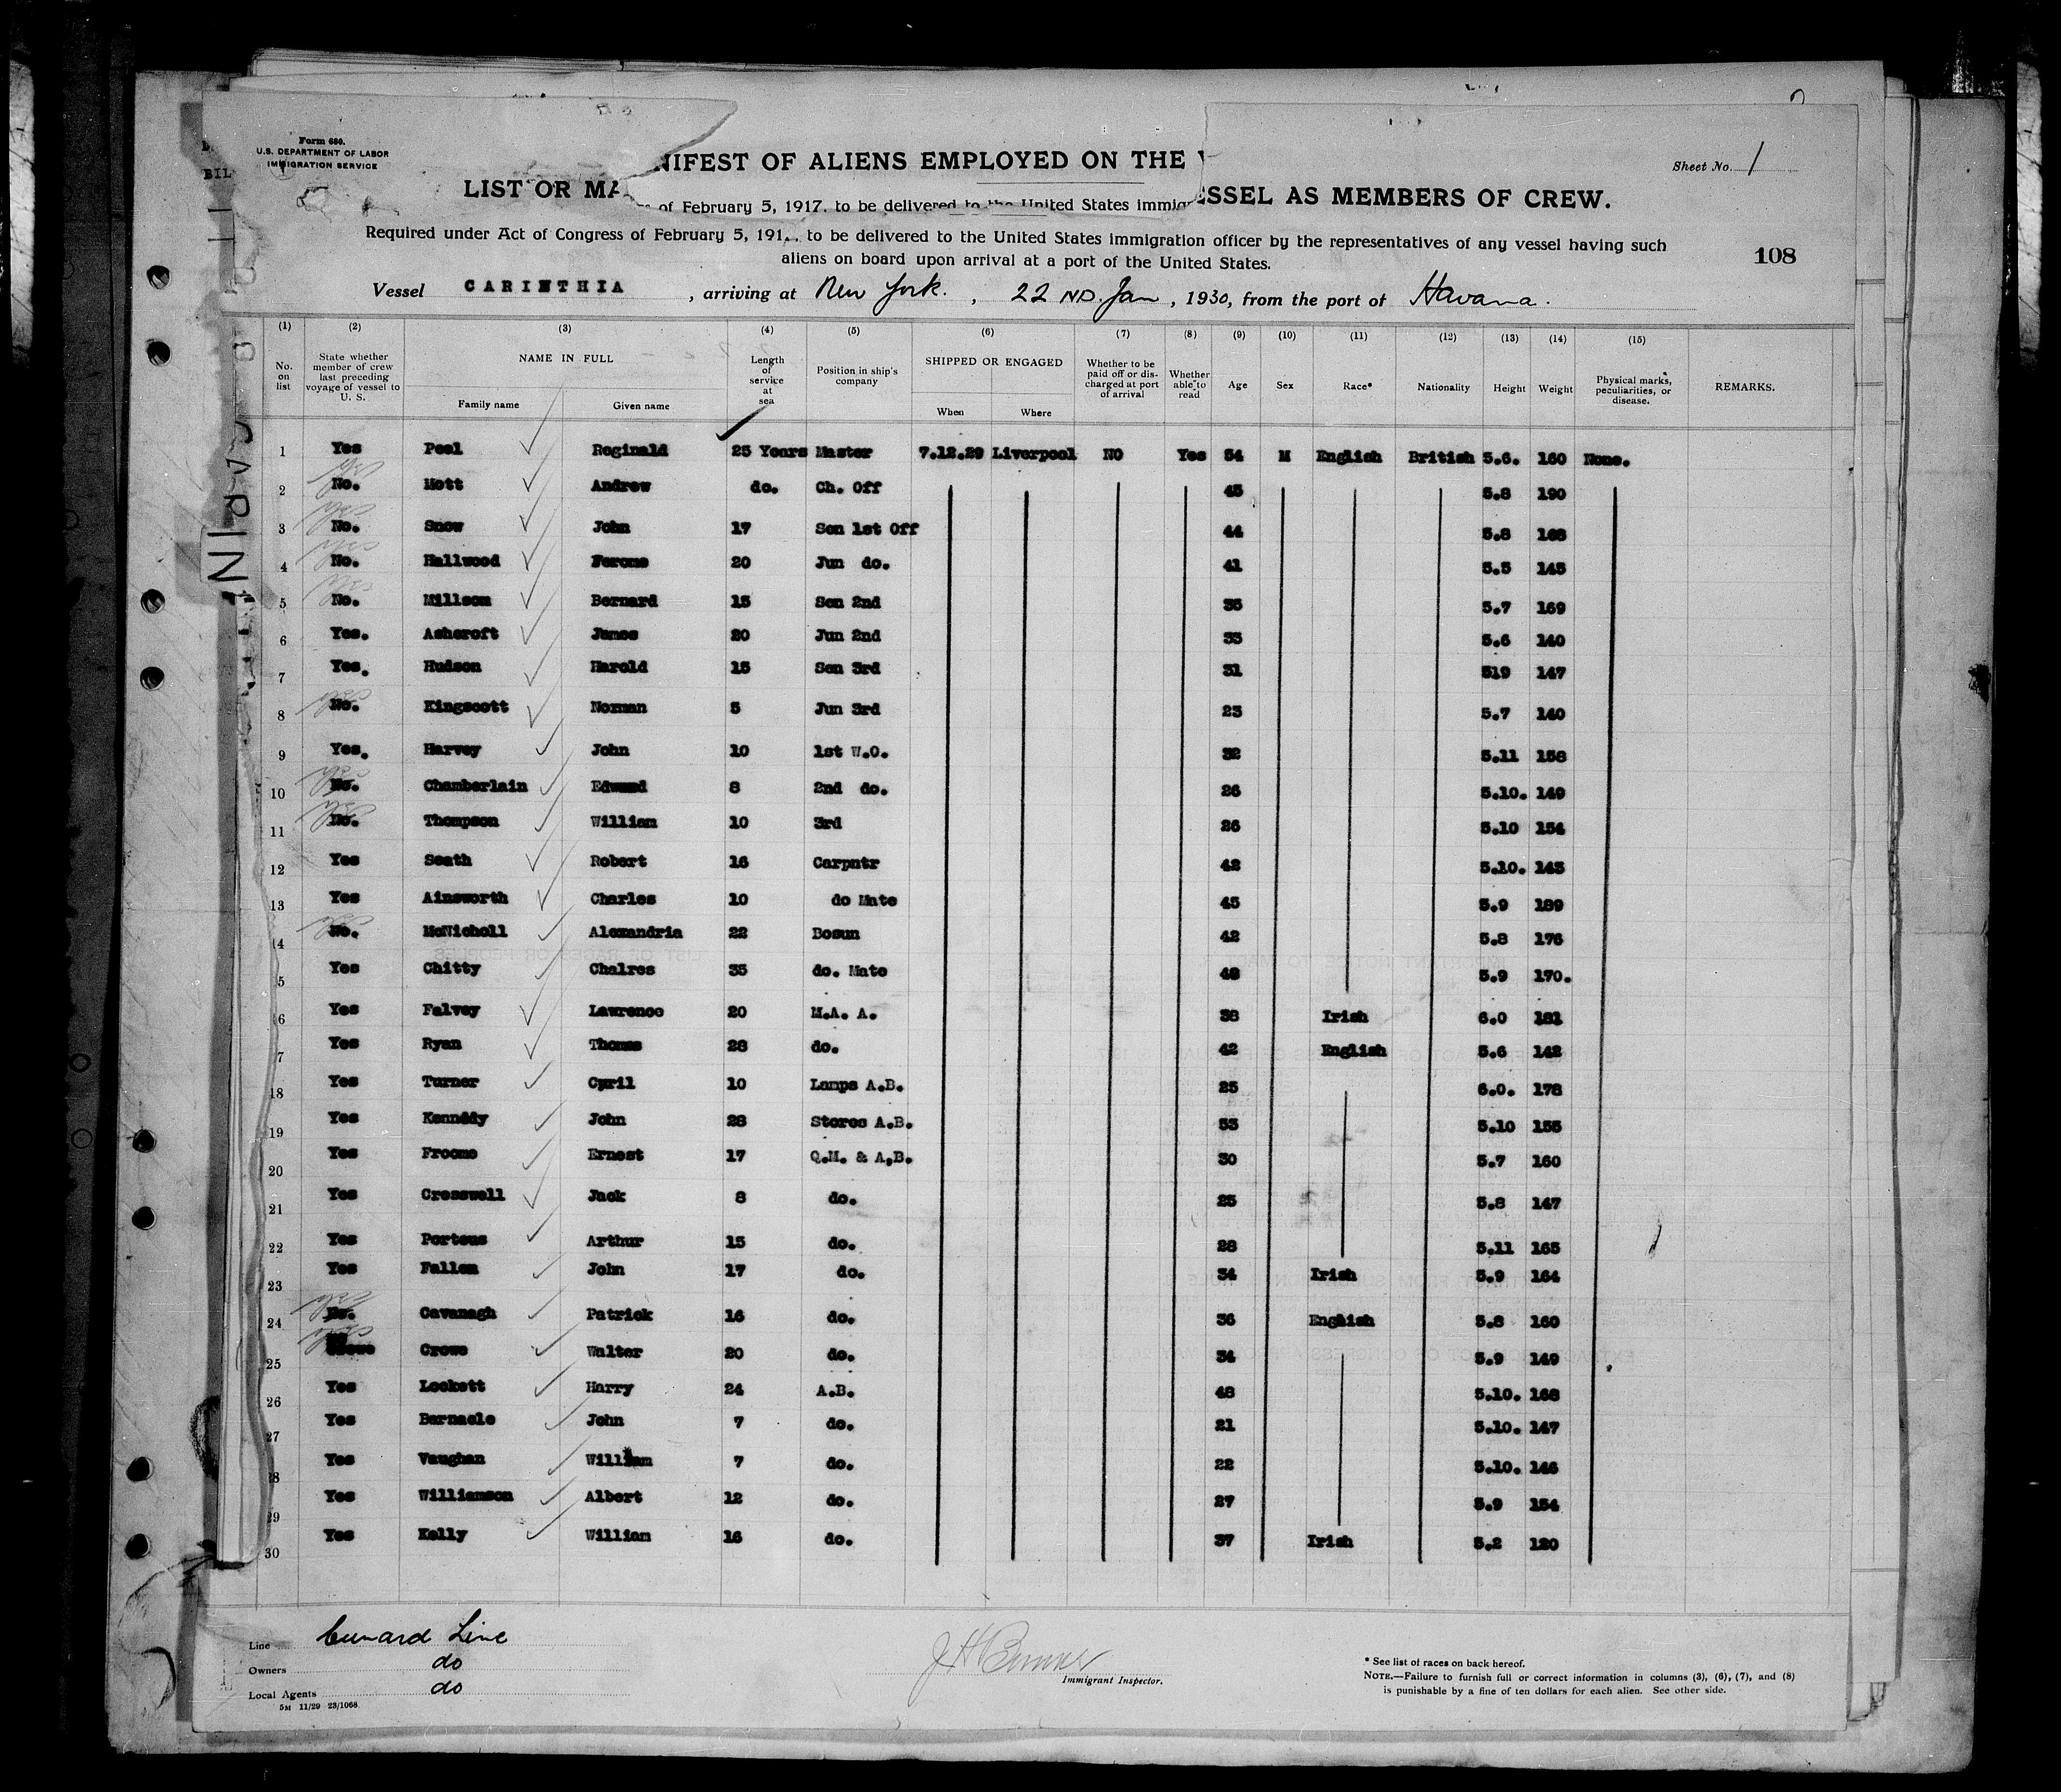 Form 680.
U.S. DEPARTMENT OF LABOR
IMMIGRATION SERVICE
NIFEST OF ALIENS EMPLOYED ON THE
LIST OR MA SSEL AS MEMBERS OF CREW.
Sheet No. 1
of February 5, 1917, to be delivered to the United States immig
Required under Act of Congress of February 5, 191 , to be delivered to the United States immigration officer by the representatives of any vessel having such
aliens on board upon arrival at a port of the United States.
108
Vessel CARINTHIA, arriving at New York., 22 ND. Jan, 1930, from the port of Havana.
(1) (2) (3) (4) (5) (6) (7) (8) (9) (10) (11) (12) (13) (14) (15)
No. on list State whether member of crew last preceding voyage of vessel to U. S. NAME IN FULL Length of service at sea Position in ship's company SHIPPED OR ENGAGED Whether to be paid off or discharged at port of arrival Whether able to read Age Sex Race* Nationality Height Weight Physical marks, peculiarities, or disease. REMARKS.
Family name Given name When Where
1 Yes Peel Reginald 25 Years Master 7.12.29 Liverpool NO Yes 54 M English British 5.6. 160 None.
2 No. yes Mott Andrew do. Ch. Off 45 5.8 190
3 No. yes Snow John 17 Sen 1st Off 44 5.8 168
4 No. yes Hallwood 20 Jun do. 41 5.5 145
5 No. yes Millsom Bernard 15 Sen 2nd 36 5.7 169
6 Yes. Ashcroft James 20 Jun 2nd 33 5.6 140
7 Yes. Hudson Harold 15 Sen 3rd 31 519 147
8 No. yes Kingscott Norman 5 Jun 3rd 23 5.7 140
9 Yes. Harvey John 10 1st W.O. 32 5.11 158
10 No. yes Chamberlain Edward 8 2nd do. 26 5.10. 149
11 No. yes Thompson William 10 3rd 26 5.10 154
12 Yes Seath Robert 16 Carpntr 42 5.10. 145
13 Yes Ainsworth Charles 10 do Mate 45 5.9 189
14 No. yes McNicholl Alexandria 22 Bosun 42 5.8 176
5 Yes Chitty Chalres 35 do. Mate 48 5.9 170.
6 Yes Falvey Lawrence 20 M.A. A. 38 Irish 6.0 181
7 Yes Ryan Thomas 28 do. 42 English 5.6 142
18 Yes Turner Cyril 10 Lamps A.B. 25 6.0. 178
19 Yes Kennedy John 28 Stores A.B. 53 5.10 155
20 Yes Froome Ernest 17 Q.M. & A.B. 30 5.7 160
21 Yes Cresswell Jack 8 do. 25 5.8 147
22 Yes Porteus Arthur 15 do. 28 5.11 165
23 Yes Fallon John 17 do. 34 Irish 5.9 164
24 No. yes Cavanagh Patrick 16 do. 36 English 5.8 160
25 yes Crowe Walter 20 do. 34 5.9 149
26 Yes Lockett Harry 24 A.B. 48 5.10. 168
27 Yes Bernacle John 7 do. 21 5.10. 147
28 Yes Vaughan William 7 do. 22 5.10. 146
29 Yes Williamson Albert 12 do. 27 5.9 154
30 Yes Kelly William 16 do. 37 Irish 5.2 120
Line Cunard Line
Owners do
Local Agents do
5M 11/29 23/1068
Immigrant Inspector.
* See list of races on back hereof.
NOTE.—Failure to furnish full or correct information in columns (3), (6), (7), and (8)
is punishable by a fine of ten dollars for each alien. See other side.